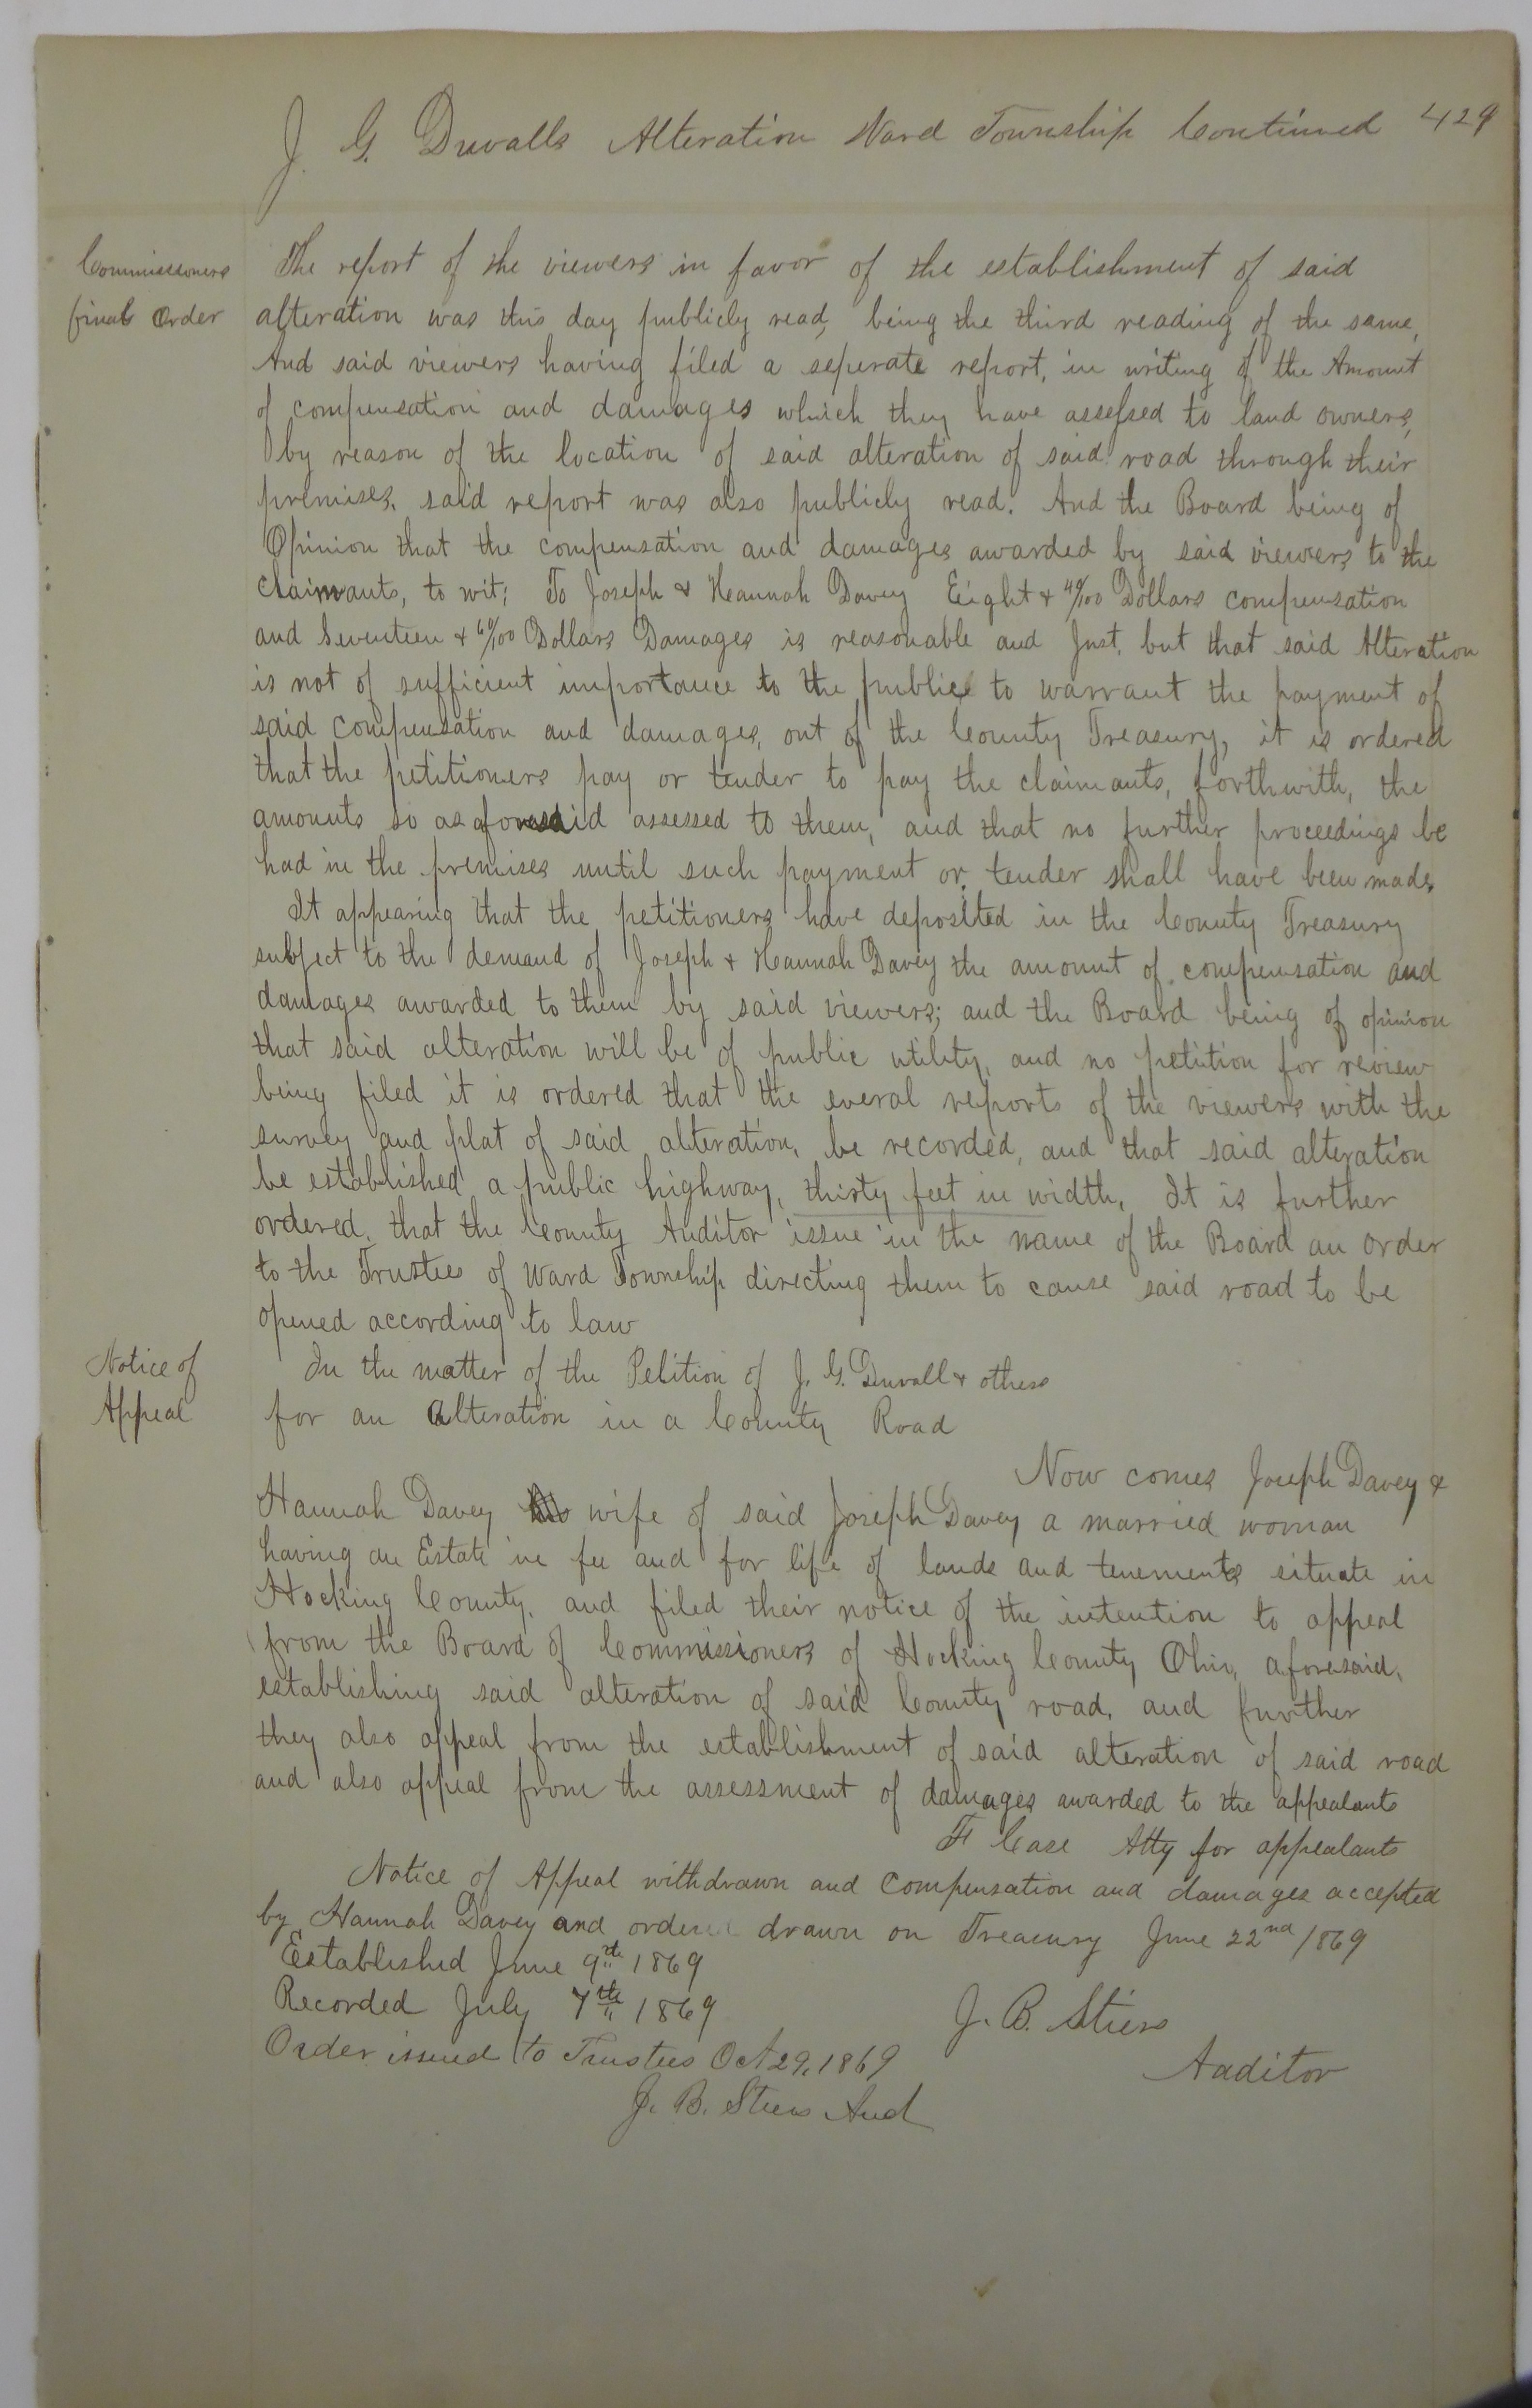 J. G. Duvalls Alteration Ward Township Continued 429
Commissioners
final Order
The report of the viewers in favor of the establishment of said
alteration was this day publicly read, being the third reading of the same,
And said viewers having filed a seperate report, in writing of the Amount
of compensation and damages which they have assessed to land owners,
by reason of the location of said alteration of said road through their
premises, said report was also publicly read. And the Board being of
Opinion that the compensation and damages awarded by said viewers to the
Claimants, to wit; To Joseph & Hannah Davey Eight & 40/100 Dollars compensation
and Seventeen & 60/100 Dollars Damages is reasonable and Just, but that said Alteration
is not of sufficient importance to the public to warrant the payment of
said compensation and damages, out of the County Treasury, it is ordered
that the petitioners pay or tender to pay the claimants, forthwith, the
amounts so as aforesaid assessed to them, and that no further proceedings be
had in the premises until such payment or tender shall have been made.
It appearing that the petitioners have deposited in the County Treasury
subject to the demand of Joseph & Hannah Davey the amount of compensation and
damages awarded to them by said viewers; and the Board being of opinion
that said alteration will be of public utility, and no petition for review
being filed it is ordered that the everal reports of the viewers with the
survey and plat of said alteration, be recorded, and that said alteration
be established a public highway, thirty feet in width. It is further
ordered, that the County Auditor issue in the name of the Board an order
to the Trustees of Ward Township directing them to cause said road to be
opened according to law
Notice of
Appeal
In the matter of the Petition of J. G. Duvall & others
for an Alteration in a County Road
Now comes Joseph Davey &
Hannah Davey wife of said Joseph Davey a married woman
having an Estate in fee and for life of lands and tenements situate in
Hocking County, and filed their notice of the intention to appeal
from the Board of Commissioners of Hocking County Ohio, aforesaid,
establishing said alteration of said County road, and further
they also appeal from the establishment of said alteration of said road
and also appeal from the assessment of damages awarded to the appealants
Case Atty for appealants
Notice of Appeal withdrawn and compensation and damages accepted
by Hannah Davey and order drawn on Treasury June 22nd 1869
Established June 9th 1869
Recorded July 7th 1869
J. B. Stiers
Auditor
Order issued to Trustees Oct 29, 1869
J. B. Stiers Aud